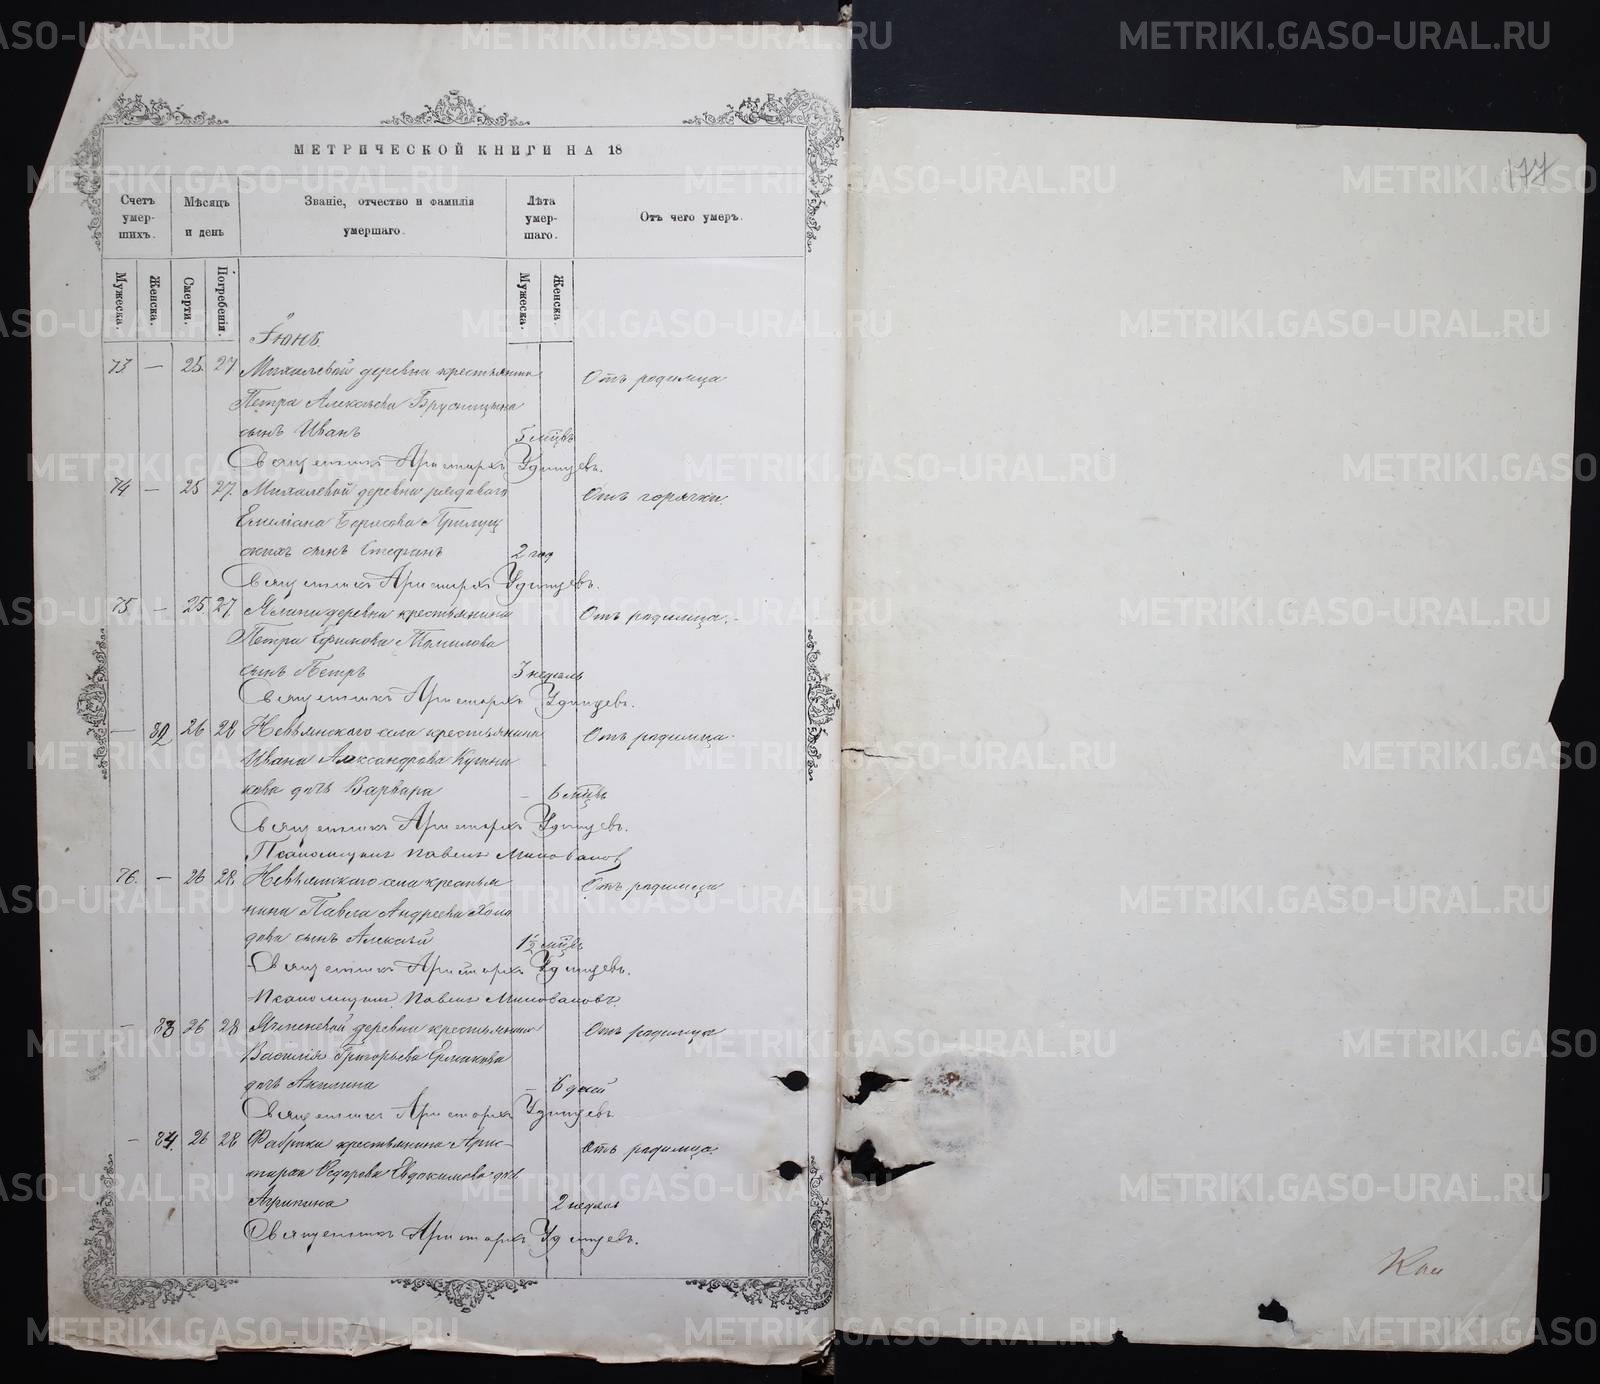 МЕТРИЧЕСКОЙ КНИГИ НА 18
177
Счетъ умер- шихъ.
Мѣсяцъ и день
Званіе, отчество и фамилія умершаго.
Лѣта умер- шаго.
Отъ чего умеръ.
Мужеска.
Женска.
Смерти.
Погребенія.
Мужеска.
Женска.
Іюнь.
73. — 25. 27 Михалевой деревни крестьянина Отъ родимца
Петра Алексѣева Брусницына
сынъ Иванъ 5 мцвъ
Священникъ Аристархъ Удинцевъ.
74 — 25 27. Михалевой деревни рядоваго Отъ горячки.
Емеліана Борисова Прилуц
скихъ сынъ Стефанъ 2 год
Священникъ Аристархъ Удинцевъ.
75 — 25 27 деревни крестьянина Отъ родимца.
Петра Томилова
сынъ Петръ 3 недѣль
Священникъ Аристархъ Удинцевъ.
— 82 26 28 Невьянскаго села крестьянина Отъ родимца.
Ивана Александрова Кушни
кова дочь Варвара — 6 мцвъ
Священникъ Аристархъ Удинцевъ.
Псаломщикъ Павелъ
76. — 26 28. Невьянскаго села крестья Отъ родимца
нина Павла Андреева Холо
дова сынъ Алексѣй 1½ мцвъ
Священникъ Аристархъ Удинцевъ.
Псаломщикъ Павелъ
— 83 26 28 Ячменевой деревни крестьянина Отъ родимца
Василія Григорьева Ермакова
дочь Акилина — 6 дней
Священникъ Аристархъ Удинцевъ
— 84. 26 28 Фабрики крестьянина Арис-
тарха Федорова Евдокимова дочь Отъ родимца.
Агрипина 2 недѣль
Священникъ Аристархъ Удинцевъ.
METRIKI.GASO-URAL.RU